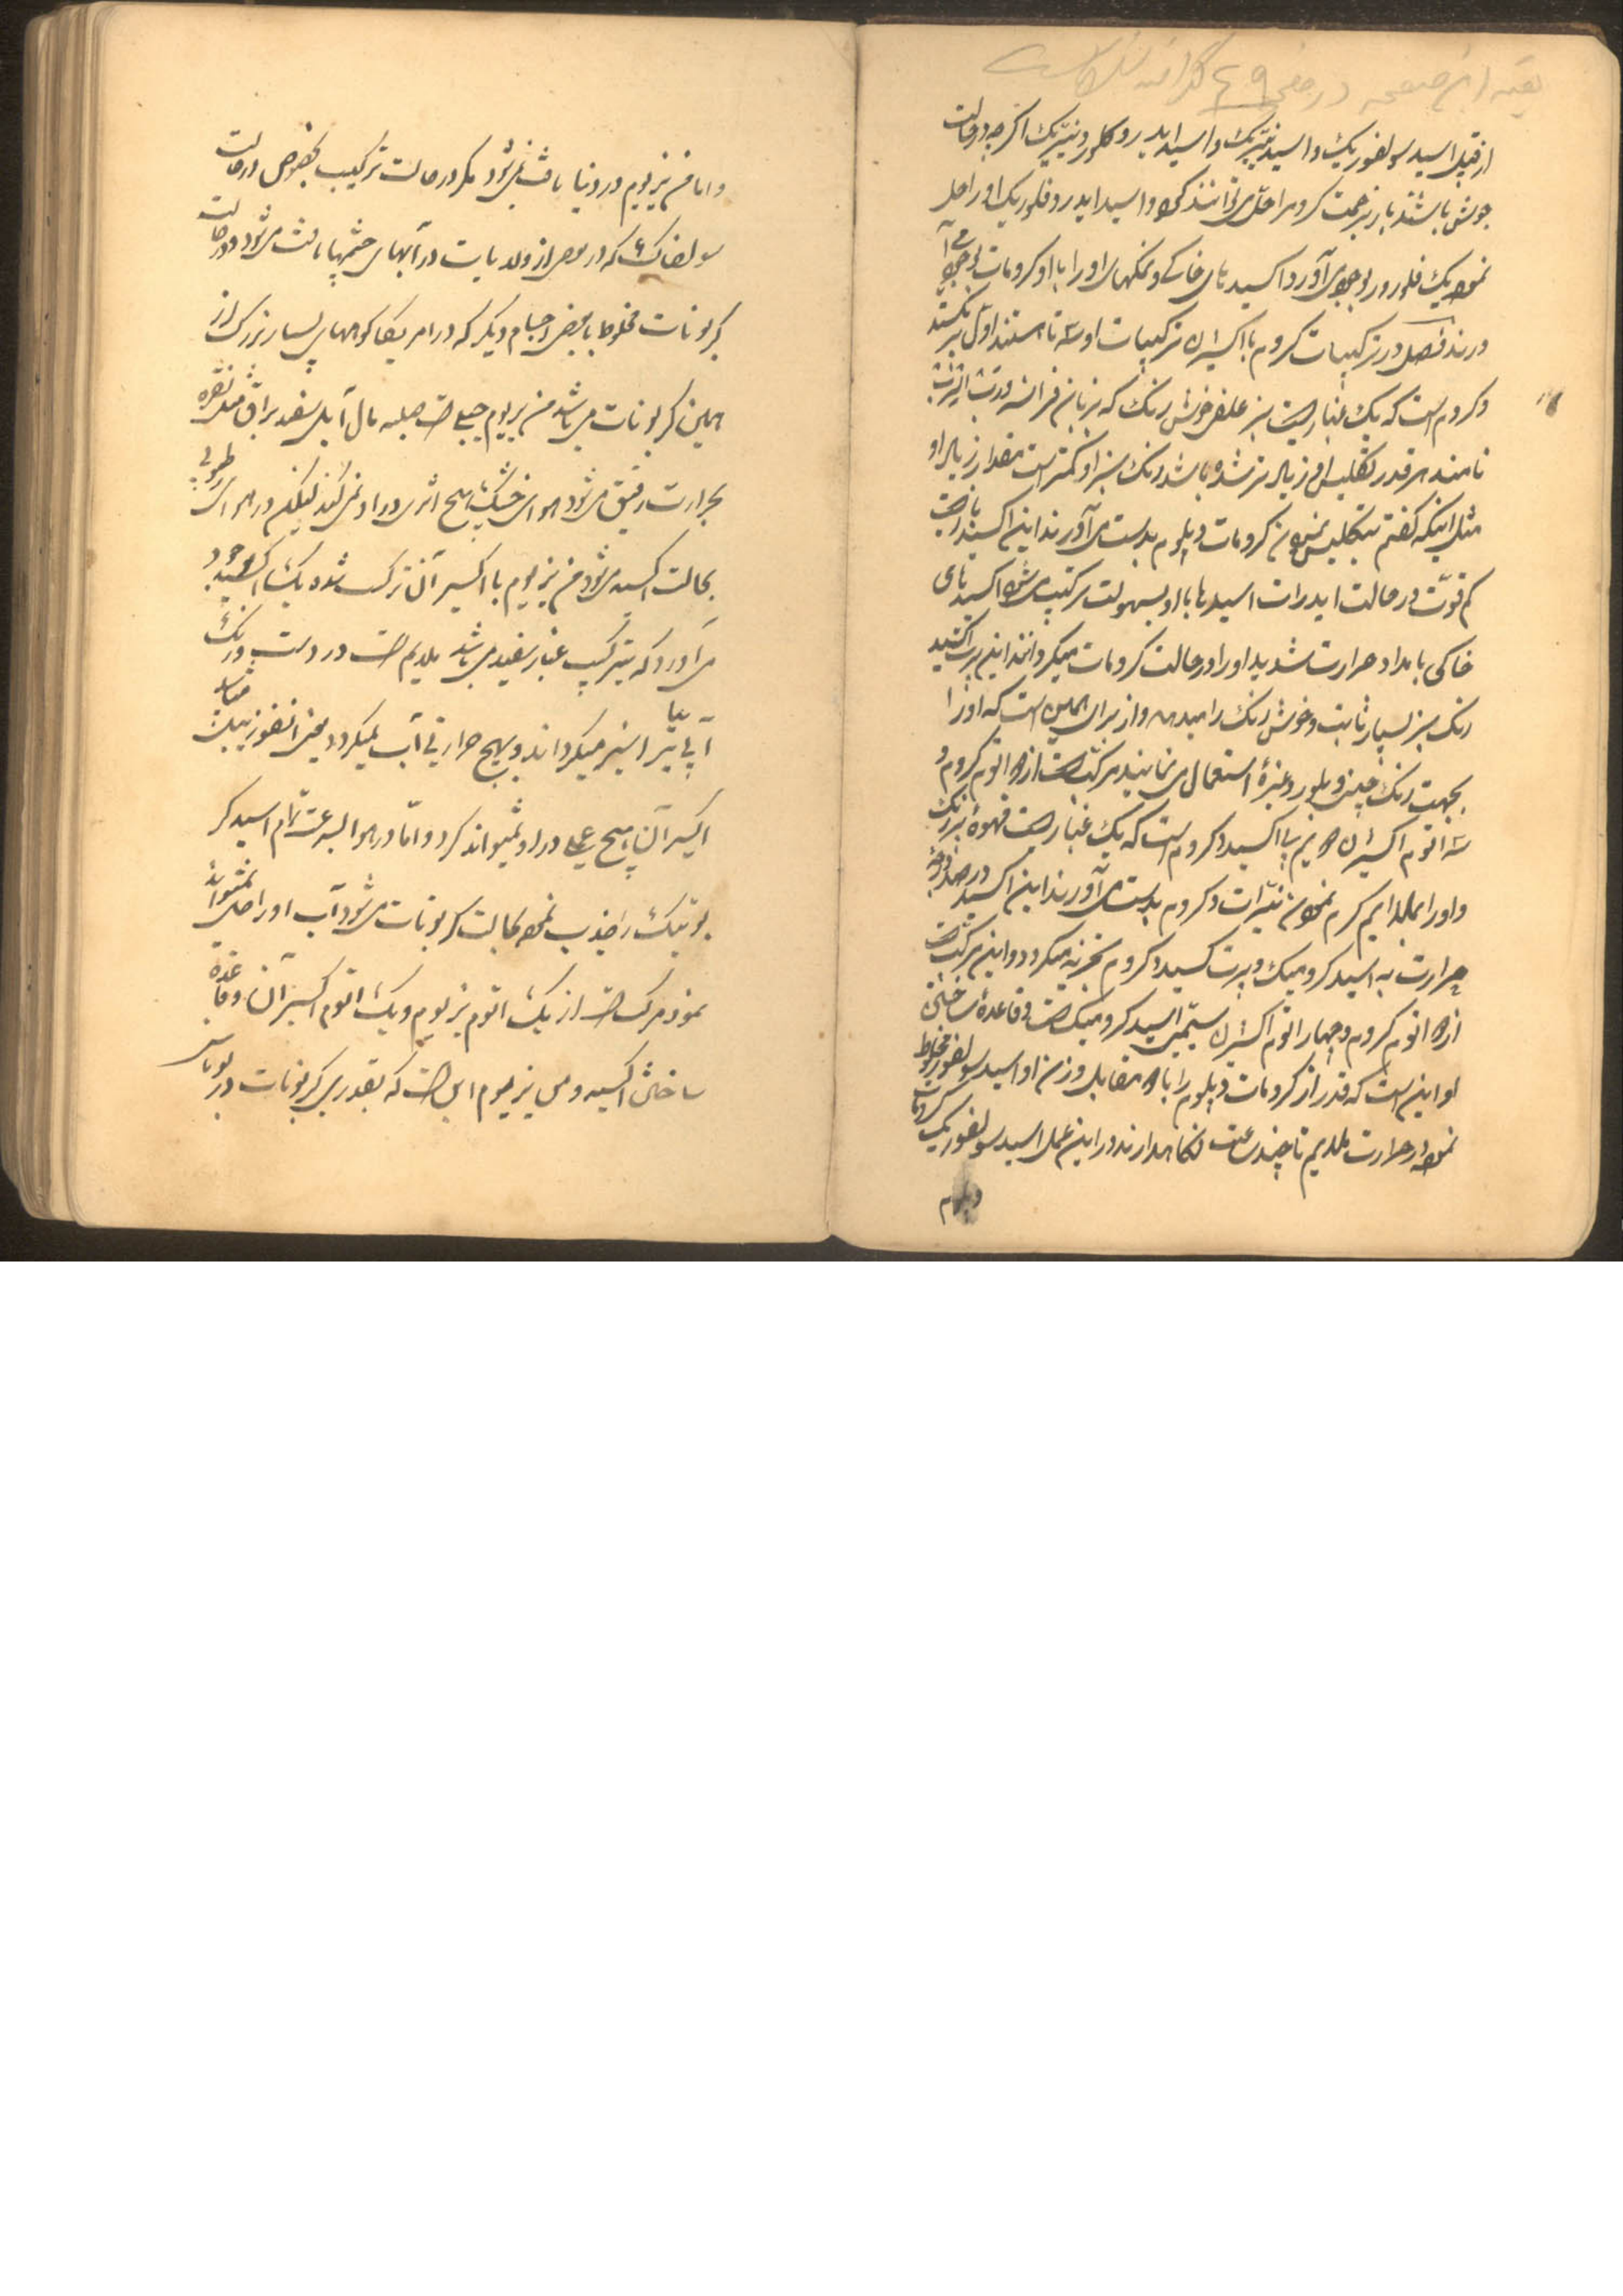 بقیه این صفحه در صفحه ۴۹
از قبیل اسید سولفوریک و اسید نیتریک و اسید ایدروکلورونیتریک اگر چه در حالت
جوش باشند باز بزحمت کروم را حل می‌توانند کرد و اسید ایدروفلوریک او را حل
نموده یک فلورور بوجود می‌آورد اکسیدهای خاکی و نمکهای او را با او کرومات بوجود می آ
ورند فصل در ترکیبات کروم با اکسیژن ترکیبات او سه تا هستند اول پرتکسید
دکروم است که یک غباریست سبز علفی خوش رنگ که بزبان فرانسه
نامند هر قدر تکلیس او زیادتر شده باشد رنگ سبز او کمتر است مقدار زیاد او
مثل اینکه گفتم بتکلیس نمودن کرومات دپلوم بدست می‌آورند این اکسید بازیست
کم قوّت در حالت ایدرات اسیدها با او بسهولت مرکب می‌شود اکسیدهای
خاکی بامداد حرارت شدید او را در حالت کرومات میگرداند این پرتکسید
رنگ سبز بسیار ثابت و خوش رنگ را میدهد و از برای همین است که او را
بجهت رنگ چینی و بلور و غیره استعمال می‌نمایند مرکب است از ۲ اتوم کروم و
سه اتوم اکسیژن ۲ یم بی‌اکسید دکروم است که یک غباریست قهوه‌ٔ پررنگ
و او را بملایم گرم نمودن نیترات دکروم بدست می‌آورند این اکسید در صد درجه
حرارت به اسید کرومیک و پرتکسید دکروم تجزیه میگردد و این مرکب است
از ۲ اتوم کروم و چهار اتوم اکسیژن سیمین اسید کرومیک است و قاعدهٔ ساختن
او این است که قدر از کرومات دپلوم را با ۲ مقابل وزن او اسید سولفوریک مخلوط
نموده در حرارت ملایم تا چند ساعت نگاهدارند در این عمل اسید سولفوریک کرومات
دپلوم
و اما منیزیوم در دنیا یافت نمی‌شود مگر در حالت ترکیب بخصوص در حالت
سولفات که در بعضی از ولدیات در آبهای چشمها یافت می‌شود و در حالت
کربونات مخلوط با بعضی اجسام دیگر که در امریکا کوههای بسیار بزرگ از
همین کربونات می‌باشد منیزیوم جسمی است صلبه مال آبی سفید براق مثل نقره
بحرارت رقیق می‌شود هوای خشک هیچ اثری در او نمی‌کند لیکن در هوای رطوبی
بحالت اکسید می‌شود منیزیوم با اکسیژن ترکیب شده یک اکسید بوجود
می‌آورد که بترکیب غبار سفید می‌باشد ملایم است در دست و رنگ
آبی را سبز میگرداند و بهیچ حرارتی آب نمیگردد
اکسیژن هیچ عملی در او نمیتواند کرد و امّا در هوا بسرعت تمام اسید کر
بونیک را جذب نموده بحالت کربونات می‌شود آب او را حل نمیتواند
نمود مرکب است از یک اتوم منیزیوم و یک اتوم اکسیژن و قاعده
ساختن اکسید دمنیزیوم این است که بقدری کربونات در بوته